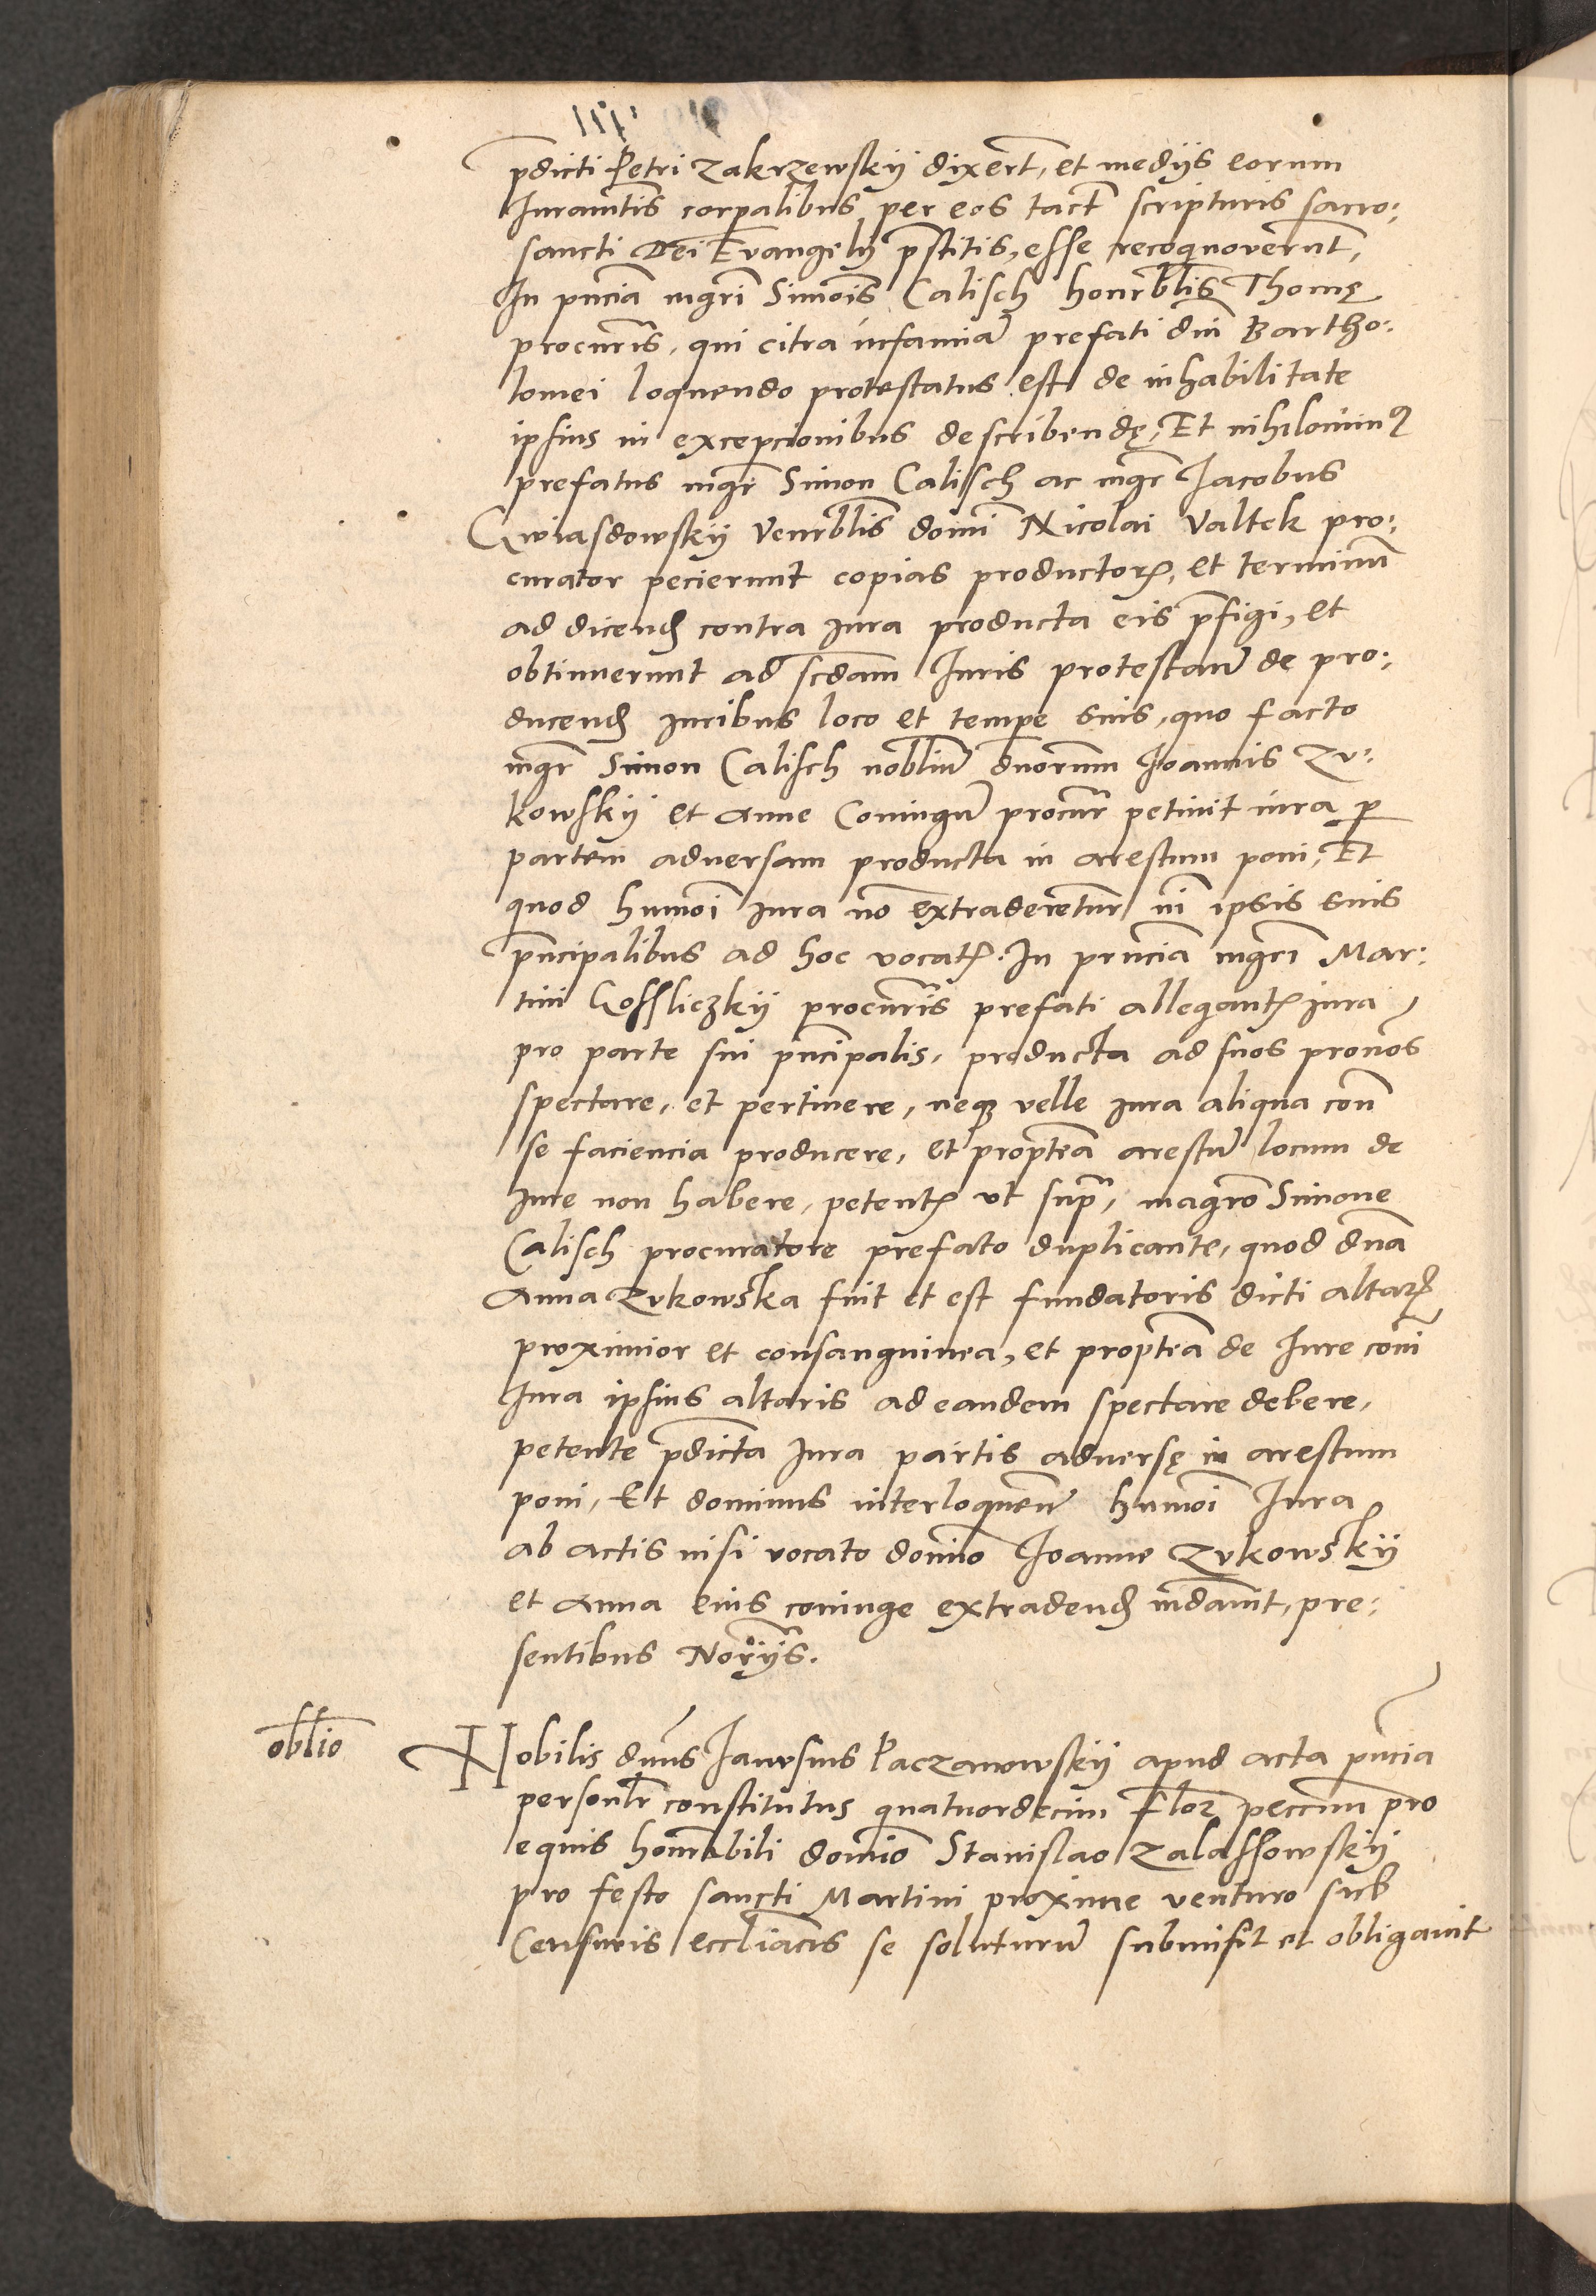 p̄dicti Petri Zakrzewskÿ dixert̄, et medÿs eorum
Iuram̄tis corpalibus per eos tact̄ scripturis sacro:
sancti Dei Evangelÿ p̄stitis, esse recognoverūt,
In pn̄cia mgri Simōis Calisch honrb̄lis Thomę
procurīs, qui citra infamiā prefati dn̄i Bartho:
lomei loquendo protestatus est de inhabilitate
ipsius in excepcionibus describendę, Et nihilominꝰ
prefatus mgr̄ Simon Calisch ac mgr̄ Iacobus
Gwiasdowskÿ Venrb̄lis domī Nicolai Valtek pro:
curator pecierunt copias productoꝝ, et terminū
ad dicend contra iura producta eis p̄figi, et
obtinuerunt ad scdam Iuris protestanr̄ de pro:
ducend iuribus loco et tempe suis, quo facto
mgr̄ Simon Calisch nobliū dnorum Ioannis Zu:
kowskÿ et Anne Coniugū procur̄ petiuit iura ꝑ
partem adversam producta in arestum poni, Et
quod humoi iura nō extraderētur ni ipsis suis
pn̄cipalibus ad hoc vocatꝭ. In prn̄cia mgri Mar:
tini Gossliczkÿ procurīs prefati allegantꝭ iura
pro parte sui pn̄cipalis, producta ad suos pronōs
spectare, et pertinere, neqꝫ velle iura aliqua con̄
se faciencia producere, et propterā arestū locum de
iure non habere, petentꝭ vt supra, magrō Simone
Calisch procuratore prefato duplicante, quod dn̄a
Anna Zukowska fuit et est fundatoris dicti altarꝭ
proximior et consanguinea, et propterā de Iure com̄i
Iura ipsius altaris ad eandem spectare debere,
petente p̄dicta Iura partis adversę in arestum
poni, Et dominus interloquenr̄ humoi Iura
ab actis nisi vocato domīo Ioanne Zukowskÿ
et Anna eius coniuge extradend mdauit, pre:
sentibus Norÿs.
obl̄io
Nobilis dn̄us Iarosius Paczanowskÿ apud acta pn̄cia
personlr̄ constitutus quatuordecim flor̄ peccum pro
equis honrabili domīo Stanislao Zalassowskÿ
pro festo sancti Martini proxime venturo sub
Censuris eccl̄iacis se soluturū submisit et obligauit